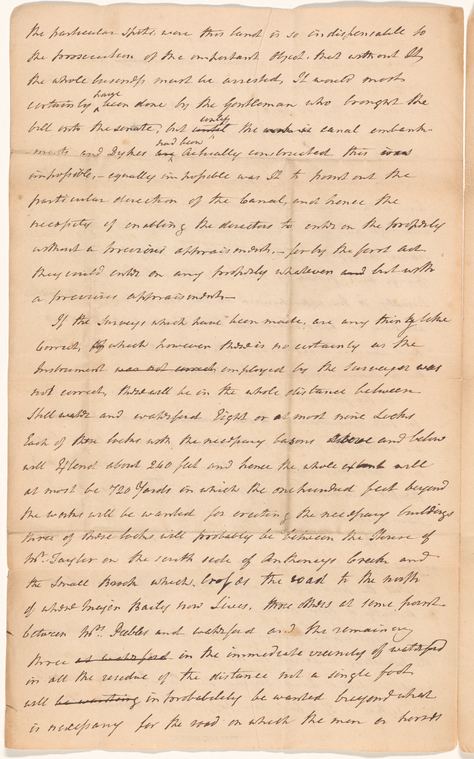 the particular spots were this land is so indispensable to
the prosecution of the important object, that without It,
the whole business must be arrested, It would most
certainly have been done by the Gentleman who brought the
bill into the senate, but until only the work is canal embank-
ments and Dykes are had been Actually constructed this was
impossible, – equally impossible was It to point out the
particular direction of the Canal, and hence the
necessity of enabling the directors to enter on the property
without a previous appraisement, – for by the first act
they could enter on any property whatever and but with
a previous appraisement –
If the Surveys which have been made, are any thing like
Correct, of which however there is no certainty as the
Instrument was not correct employed by the Surveyor was
not correct, there will be in the whole distance between
Still water and waterford Eight or at most nine Locks
Each of those locks with the necessary basons above and below
will Extend about 240 feet and hence the whole will
at most be 720 Yards in which the one hundred feet beyond
the works will be wanted for erecting the necessary buildings
three of these locks will probably be between the House of
Mr. Taylor on the south side of Anthoneys Creek and
the Small Brook which crosses the road to the north
of where Major Baily now Lives. three others at some point
between Mrs. Peebles and waterford and the remaining
three at waterford in the immediate vicinity of waterford
in all the residue of the distance not a single foot
will be wanting in probability be wanted beyond what
is necessary for the road on which the men or horses